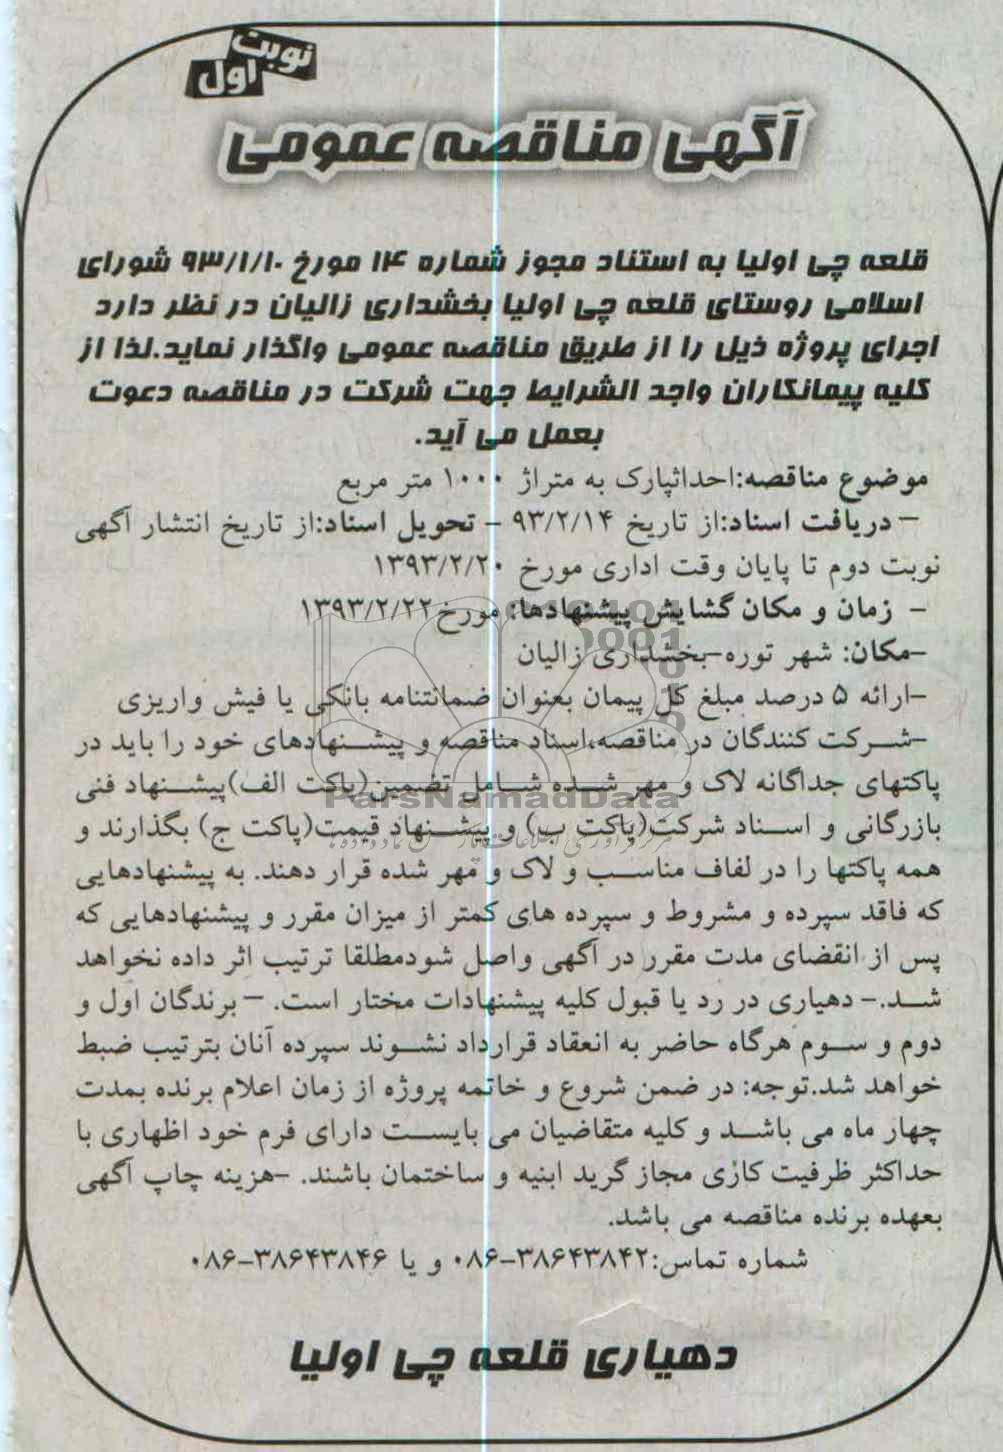 نوبت
اول
آگهی مناقصه عمومی
قلعه چی اولیا به استناد مجوز شماره ۱۴ مورخ ۹۳/۱/۱۰ شورای
اسلامی روستای قلعه چی اولیا بخشداری زالیان در نظر دارد
اجرای پروژه ذیل را از طریق مناقصه عمومی واگذار نماید.لذا از
کلیه پیمانکاران واجد الشرایط جهت شرکت در مناقصه دعوت
بعمل می آید.
موضوع مناقصه:احداثپارک به متراژ ۱۰۰۰ متر مربع
- دریافت اسناد:از تاریخ ۹۳/۲/۱۴ - تحویل اسناد:از تاریخ انتشار آگهی
نوبت دوم تا پایان وقت اداری مورخ ۱۳۹۳/۲/۲۰
- زمان و مکان گشایش پیشنهادها: مورخ ۱۳۹۳/۲/۲۲
-مکان: شهر توره-بخشداری زالیان
-ارائه ۵ درصد مبلغ کل پیمان بعنوان ضمانتنامه بانکی یا فیش واریزی
-شرکت کنندگان در مناقصه،اسناد مناقصه و پیشنهادهای خود را باید در
پاکتهای جداگانه لاک و مهر شده شامل تضمین(پاکت الف)پیشنهاد فنی
بازرگانی و اسناد شرکت(پاکت ب) و پیشنهاد قیمت(پاکت ج) بگذارند و
همه پاکتها را در لفاف مناسب و لاک و مهر شده قرار دهند. به پیشنهادهایی
که فاقد سپرده و مشروط و سپرده های کمتر از میزان مقرر و پیشنهادهایی که
پس از انقضای مدت مقرر در آگهی واصل شودمطلقا ترتیب اثر داده نخواهد
شد.- دهیاری در رد یا قبول کلیه پیشنهادات مختار است. - برندگان اول و
دوم و سوم هرگاه حاضر به انعقاد قرارداد نشوند سپرده آنان بترتیب ضبط
خواهد شد.توجه: در ضمن شروع و خاتمه پروژه از زمان اعلام برنده بمدت
چهار ماه می باشد و کلیه متقاضیان می بایست دارای فرم خود اظهاری با
حداکثر ظرفیت کاری مجاز گرید ابنیه و ساختمان باشند. -هزینه چاپ آگهی
بعهده برنده مناقصه می باشد.
شماره تماس:۳۸۶۴۳۸۴۲-۰۸۶ و یا ۳۸۶۴۳۸۴۶-۰۸۶
دهیاری قلعه چی اولیا
ParsNamadData